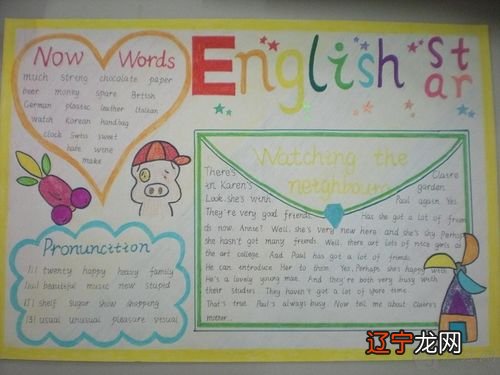 Now Words
much strong chocolate paper
beer monkey spare British
German plastic leather Italian
watch Korean handbag
clock Swiss sweet
hate wine
make
English star
Pronunciition
twenty happy heavy family
beautiful music new stupid
shelf sugar show shopping
usual unusual pleasure visual
Watching the
neighbours
There's Claire
in Karen's garden.
Look, she's with Paul again. Yes.
They're very good friends. Has she got a lot of frien
ds now, Annie? Well, she's very new here and she's shy. Perhaps
she hasn't got many friends. Well, there are lots of nice girls at
the art college. And Paul has got a lot of friends.
He can introduce Her to them. Yes, Perhaps she's happy with
He's a lovely young man. And they are both very busy with
their studies. They haven't got a lot of spare time.
That's true. Paul's always busy. Now tell me about Claire's
mother
辽宁龙网